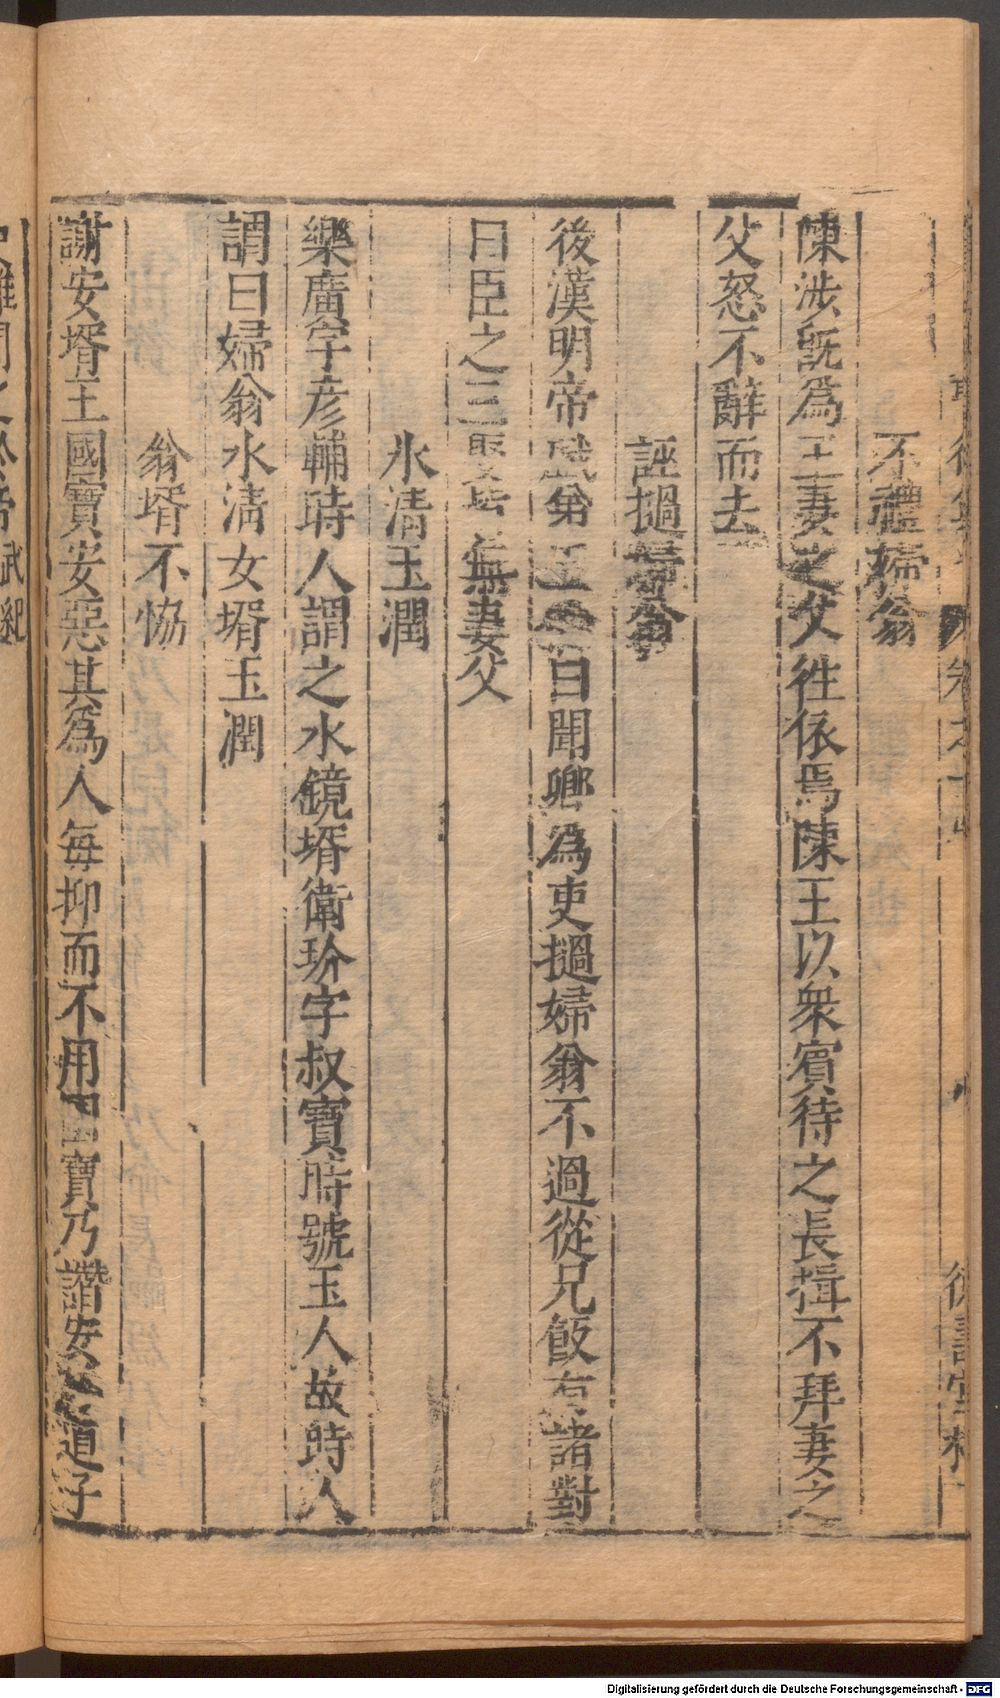 不禮婦翁
陳涉旣爲王妻之父徃依焉陳王以衆賓待之長揖不拜妻之
父怒不辭而去
誣撾婦翁
後漢明帝戱第五倫曰聞卿爲吏撾婦翁不過從兄飯有諸對
曰臣之三娶皆無妻父
氷清玉潤
樂廣字彦輔時人謂之水鏡壻衛玠字叔寳時號玉人故時人
謂曰婦翁水清女壻玉潤
翁壻不恊
謝安壻王國寳安惡其爲人毎抑而不用國寳乃譖安道子
Digitalisierung gefördert durch die Deutsche Forschungsgemeinschaft - DFG